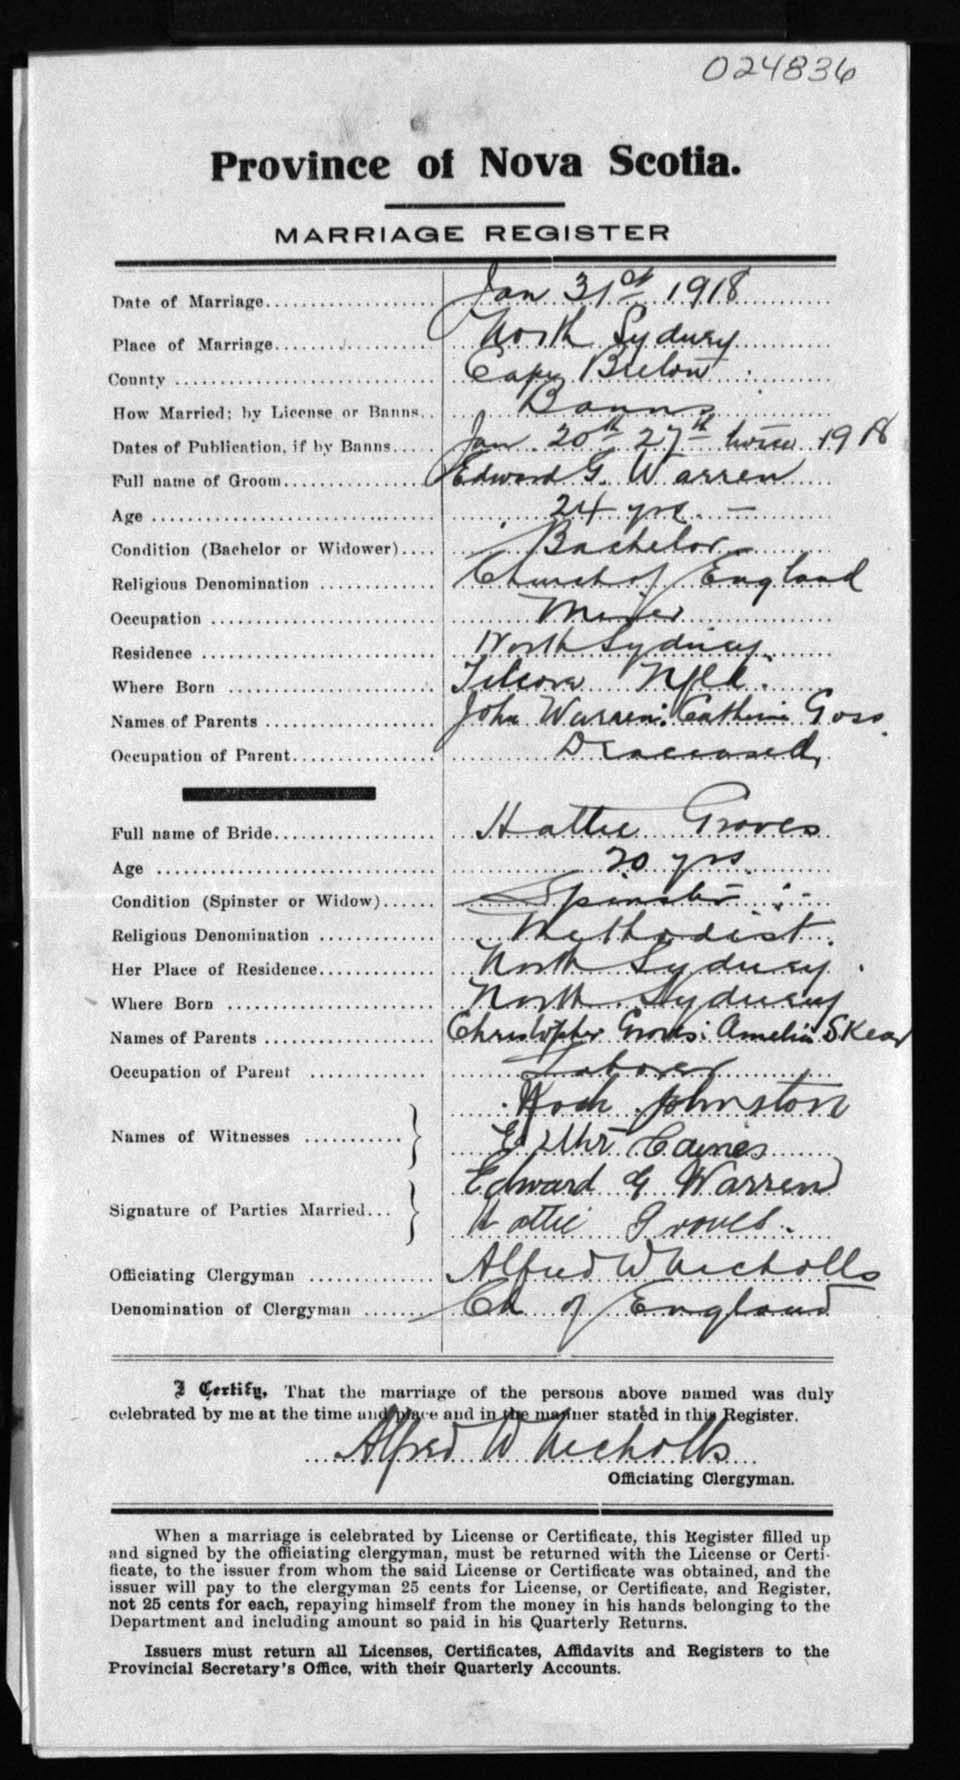 024836
Province of Nova Scotia.
MARRIAGE REGISTER
Date of Marriage.................. Jan 31st 1918
Place of Marriage................. North Sydney
County ........................... Cape Breton
How Married; by License or Banns.. Banns
Dates of Publication, if by Banns..... Jan 20th 27th twice 1918
Full name of Groom................ Edward G. Warren
Age .............................. 24 yrs. —
Condition (Bachelor or Widower).... Bachelor
Religious Denomination ............ Church of England
Occupation ....................... Miner
Residence ........................ North Sydney
Where Born ....................... Nfld.
Names of Parents ................. John Warren: Catherine Goss
Occupation of Parent.............. Deceased
Full name of Bride................ Hattie Groves
Age .............................. 20 yrs.
Condition (Spinster or Widow)...... Spinster :-
Religious Denomination ............ Methodist.
Her Place of Residence............ North Sydney.
Where Born ....................... North Sydney
Names of Parents ................. Christopher Groves: Amelia Skear
Occupation of Parent ............. Laborer
Johnston
Names of Witnesses ...........
Caines
Edward G Warren
Signature of Parties Married...
Hattie Groves.
Officiating Clergyman ............. Alfred W Nicholls
Denomination of Clergyman ....... Ch of England
I Certify, That the marriage of the persons above named was duly
celebrated by me at the time and place and in the manner stated in this Register.
Alfred W Nicholls
Officiating Clergyman.
When a marriage is celebrated by License or Certificate, this Register filled up
and signed by the officiating clergyman, must be returned with the License or Certi-
ficate, to the issuer from whom the said License or Certificate was obtained, and the
issuer will pay to the clergyman 25 cents for License, or Certificate, and Register,
not 25 cents for each, repaying himself from the money in his hands belonging to the
Department and including amount so paid in his Quarterly Returns.
Issuers must return all Licenses, Certificates, Affidavits and Registers to the
Provincial Secretary's Office, with their Quarterly Accounts.